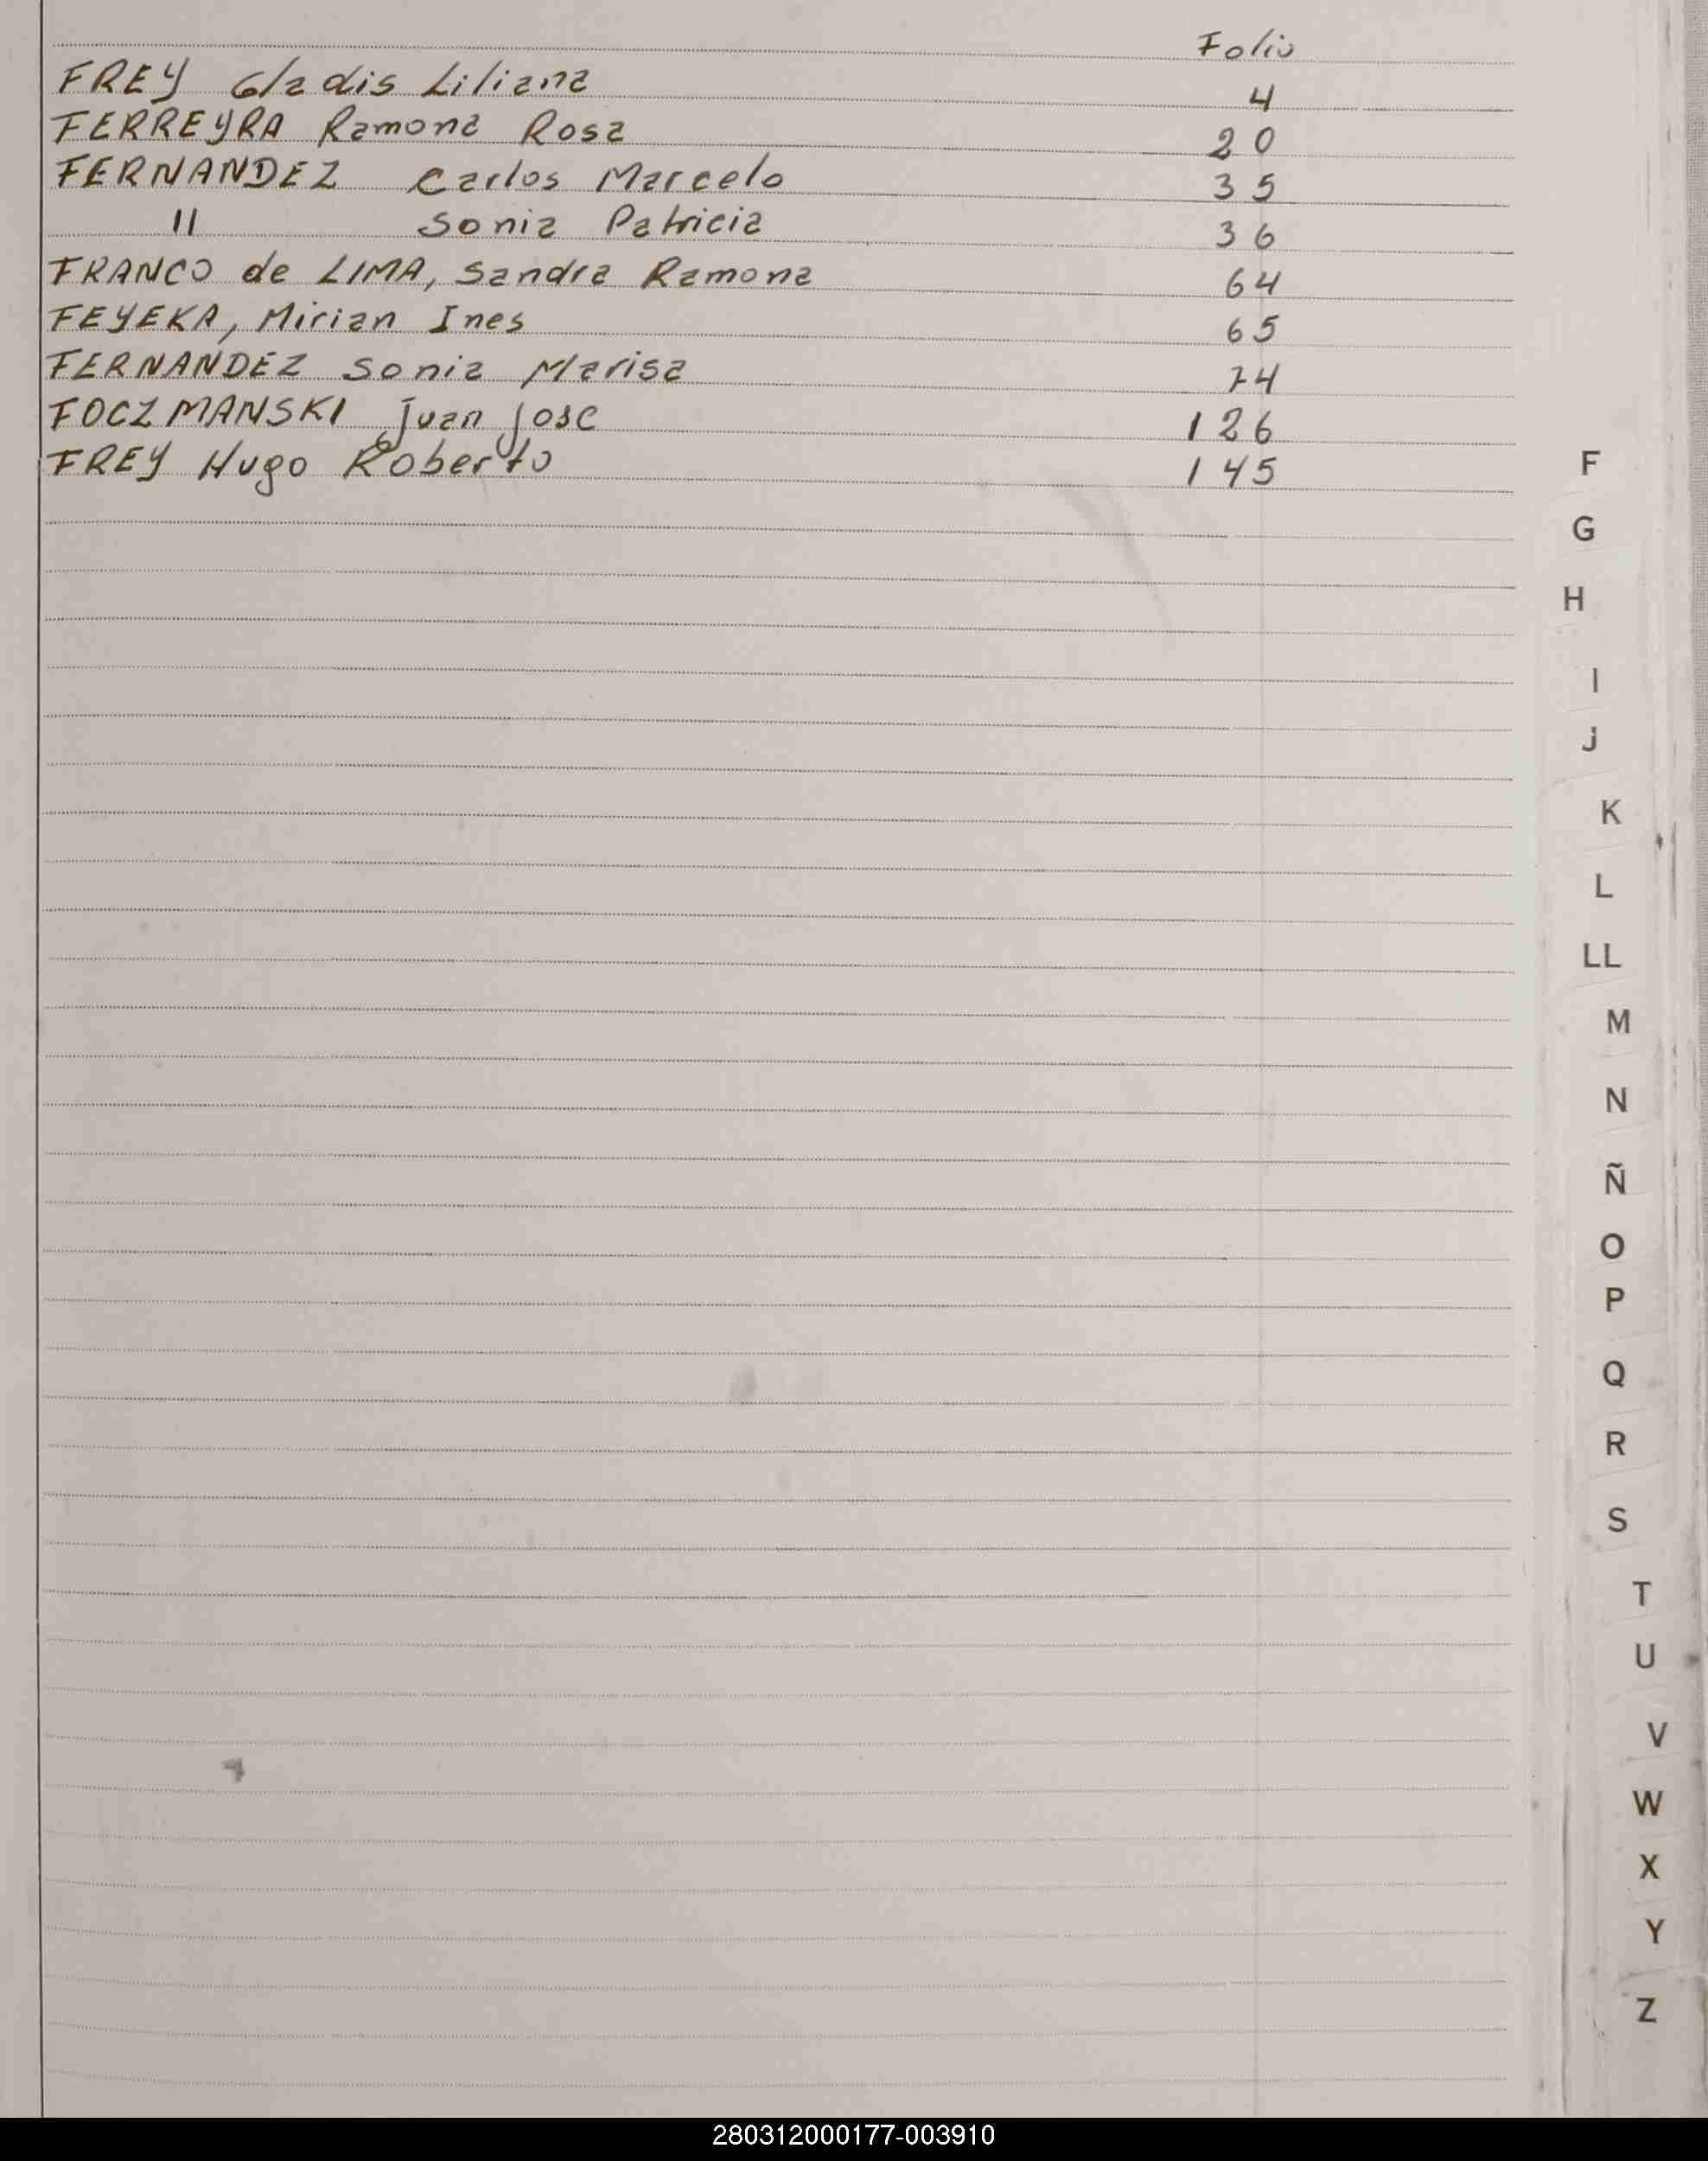 Folio
FREY Gladis Liliana 4
FERREYRA Ramona Rosa 20
FERNANDEZ Carlos Marcelo 35
" Sonia Patricia 36
FRANCO de LIMA, Sandra Ramona 64
FEYEKA, Mirian Ines 65
FERNANDEZ Sonia Marisa 74
FOCZMANSKI Juan Jose 126
FREY Hugo Roberto 145
F
G
H
I
J
K
L
LL
M
N
Ñ
O
P
Q
R
S
T
U
V
W
X
Y
Z
280312000177-003910